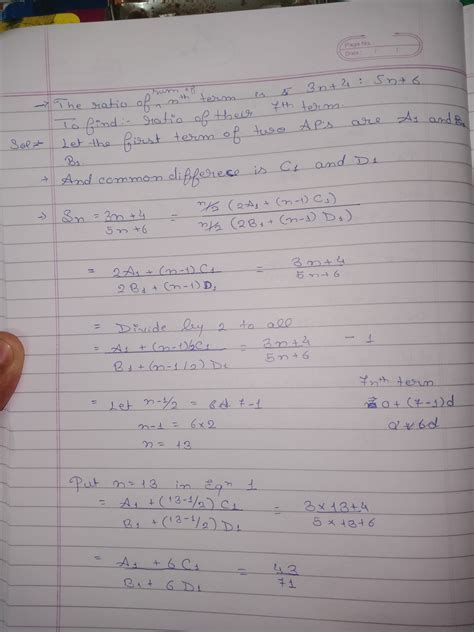 Page No.
Date:
→ The ratio of sum of nth term is 3n+4 : 5n+6
To find:- ratio of their 7th term
Sol→ Let the first term of two APs are A1 and B1
B1
→ And common differece is C1 and D1
→ Sn = 3n+4/5n+6 = n/2 (2A1 + (n-1) C1) / n/2 (2B1 + (n-1) D1)
= 2A1 + (n-1) C1 / 2B1 + (n-1) D1 = 3n+4 / 5n+6
= Divide by 2 to all
= A1 + (n-1)/2 C1 / B1 + (n-1/2) D1 = 3n+4 / 5n+6 - 1
7nth term
= Let n-1/2 = 7-1
a + (7-1)d
n-1 = 6x2
a + 6d
n = 13
Put n = 13 in Eqn 1
= A1 + (13-1/2) C1 / B1 + (13-1/2) D1 = 3x13+4 / 5x13+6
= A1 + 6C1 / B1 + 6D1 = 43/71